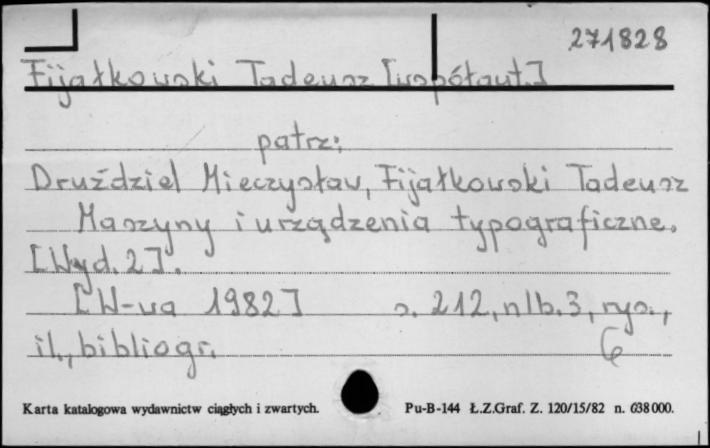 271828
Fijałkowski Tadeusz [współaut.]
patrz:
Druździel Mieczysław, Fijałkowski Tadeusz
Maszyny i urządzenia typograficzne.
[Wyd. 2].
[W-wa 1982] s. 212, nlb. 3, rys.,
il., bibliogr. 6
Karta katalogowa wydawnictw ciągłych i zwartych. Pu-B-144 Ł.Z.Graf. Z. 120/15/82 n. 638000.